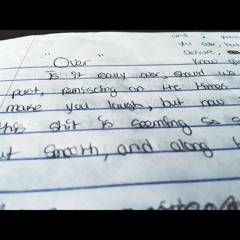 and I
you over, but
closure,
Know
"Over"
Is it really over, should we
past, reminiscing on the times
make you laugh, but now
this shit is seeming so s
ut smooth, and along